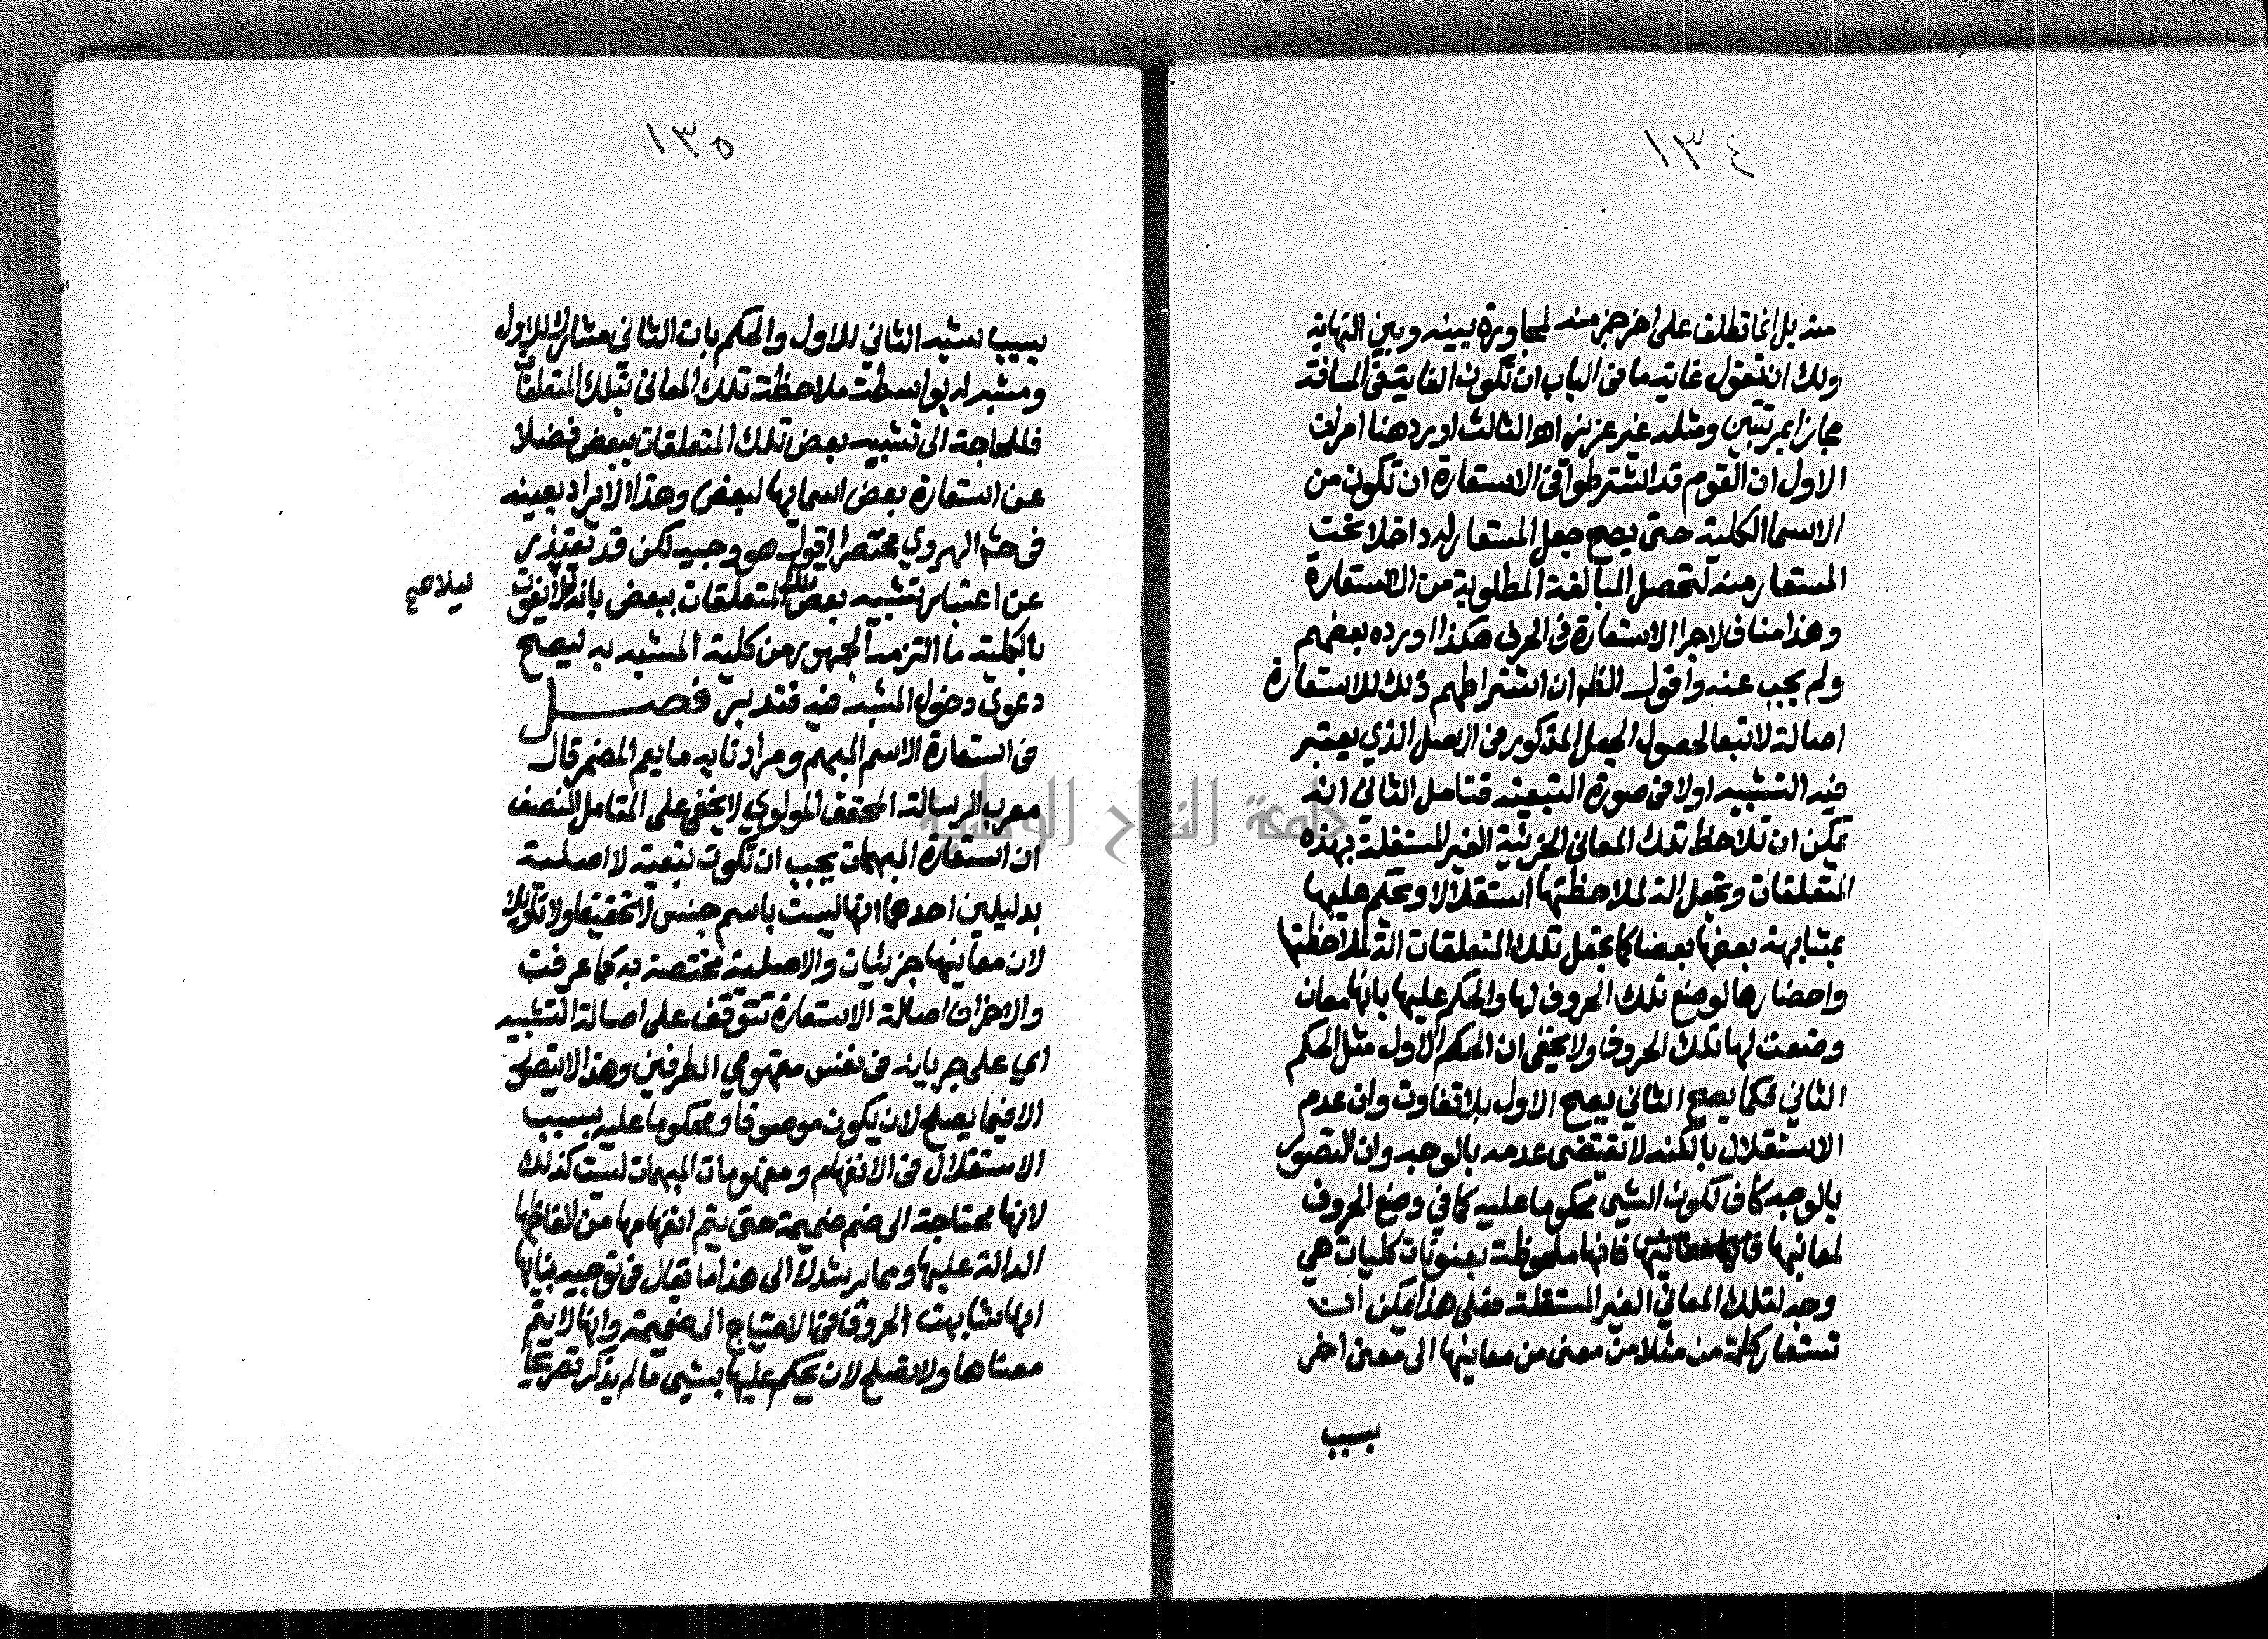 ١٣٤
منه بل انما تطلق على اخر جزء منه لمجاورة بينه وبين النهاية
ولك ان تقول غاية ما فى الباب ان تكون الغاية فى المسافة
مجازا بمرتبتين ومثله غير عزيز اهـ الثالث اورد هنا امران
الاول ان القوم قد اشترطوا فى الاستعارة ان تكون من
الاسما الكلية حتى يصح جعل المستعار له داخلا تحت
المستعار منه لتحصل المبالغة المطلوبة من الاستعارة
وهذا مناف لاجرا الاستعارة فى الحرف هكذا اورده بعضهم
ولم يجب عنه واقول الظم ان اشتراطهم ذلك للاستعارة
اصالة لا تبعا لحصول الجعل المذكور فى الاصل الذي يعتبر
فيه التشبيه اولا فى صورة التبعية فتامل الثانى انه
يمكن ان تلاحظ تلك المعانى الجزئية الغير المستقلة بهذه
المتعلقات وتجعل الة لملاحظتها استقلالا ويحكم عليها
بمشابهة بعضها بعضا كما يجعل تلك المتعلقات الة لملاحظتها
واحضارها لوضع تلك الحروف لها والحكم عليها بانها معان
وضعت لها تلك الحروف ولا يخفى ان الحكم الاول مثل الحكم
الثاني فكما يصح الثاني يصح الاول بلا تفاوت وان عدم
الاستقلال بالكنه لا يقتضى عدمه بالوجه وان التصور
بالوجه كاف لكون الشيئ محكوما عليه كما في وضع الحروف
لمعانيها فانها ملحوظة بعنوانات كليات هي
وجه لتلك المعاني الغير المستقلة فعلى هذا يمكن ان
تستعار كلمة من مثلا من معنى من معانيها الى معنى اخر
بسبب
١٣٥
بسبب تشبيه الثاني للاول والحكم بان الثاني مشارك للاول
ومشبه له بواسطة ملاحظة تلك المعانى بتلك المتعلقات
فلا حاجة الى تشبيه بعض تلك المتعلقات ببعض فضلا
عن استعارة بعض اسمائها لبعض وهذا الايراد بعينه
فى حش الهروي مختصرا اقول هو وجيه لكن قد يعتذر
عن اعتبار تشبيه بعض تلك المتعلقات ببعض بانه لئلا يفوت
لئلا صح
بالكلية ما التزمه الجمهور من كلية المشبه به ليصح
دعوى دخول المشبه فيه فتدبر فصل
فى استعارة الاسم المبهم ومرادنا به ما يعم المضمر قال
معرب الرسالة المحقق المولوي لا يخفى على المتامل المنصف
ان استعارة المبهمات يجب ان تكون تبعية لا اصلية
بدليلين احدهما انها ليست باسم جنس لا تحقيقا ولا تاويلا
لان معانيها جزئيات والاصلية مختصة به كما عرفت
والاخر ان اصالة الاستعارة تتوقف على اصالة التشبيه
اي على جريانه فى نفس مفهومي الطرفين وهذا لا يتصور
الا فيما يصلح لان يكون موصوفا ومحكوما عليه بسبب
الاستقلال فى الانفهام ومفهومات المبهمات ليست كذلك
لانها محتاجة الى ضم ضميمة حتى يتم انفهامها من الفاظها
الدالة عليها ومما يرشدك الى هذا ما يقال فى توجيه بنائها
انها شابهت الحروف فى الاحتياج الى ضميمة وانها لا يتم
معناها ولا تصلح لان يحكم عليها بشيئ ما لم يذكر تصريحا